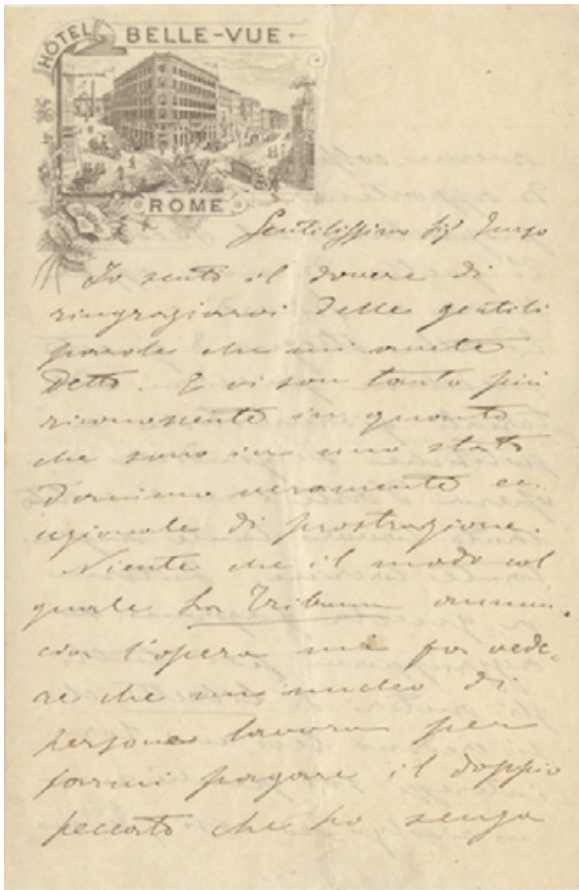 HÔTEL BELLE-VUE
ROME
Gentilissimo Sigr
Io sento il dovere di
ringraziarvi delle gentili
parole che mi avete
detto. E vi son tanto più
riconoscente in quanto
che sono in uno stato
d'animo veramente ec-
cezionale di prostrazione.
Niente che il modo col
quale La Tribuna annun-
cia l'opera mi fa vede-
re che un nucleo di
persone lavora per
farmi pagare il doppio
peccato che ho senza